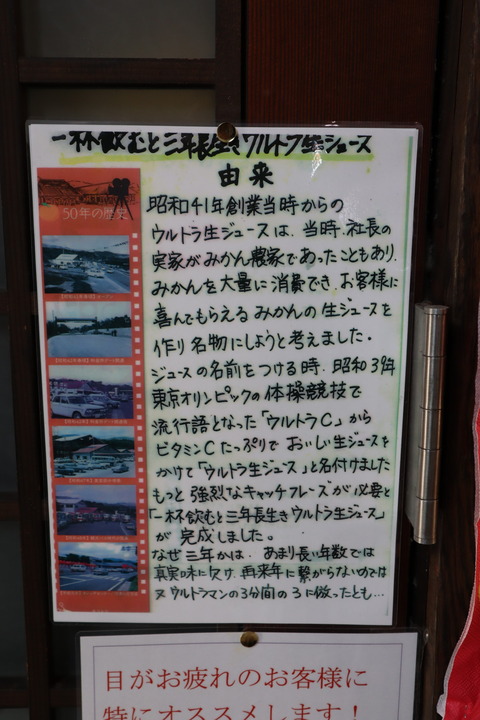 一杯飲むと三年長生きウルトラ生ジュース
由来
50年の歴史
昭和41年創業当時からの
ウルトラ生ジュースは、当時、社長の
実家がみかん農家であったこともあり、
みかんを大量に消費でき、お客様に
喜んでもらえるみかんの生ジュースを
作り名物にしようと考えました。
ジュースの名前をつける時、昭和39年
東京オリンピックの体操競技で
流行語となった「ウルトラC」から
ビタミンCたっぷりでおいしい生ジュースを
かけて「ウルトラ生ジュース」と名付けました
もっと強烈なキャッチフレーズが必要と
「一杯飲むと三年長生きウルトラ生ジュース」
が完成しました。
なぜ三年かは、あまり長い年数では
真実味に欠け、再来年に繋がらないのでは
又ウルトラマンの3分間の3に倣ったとも…
目がお疲れのお客様に
特にオススメします!